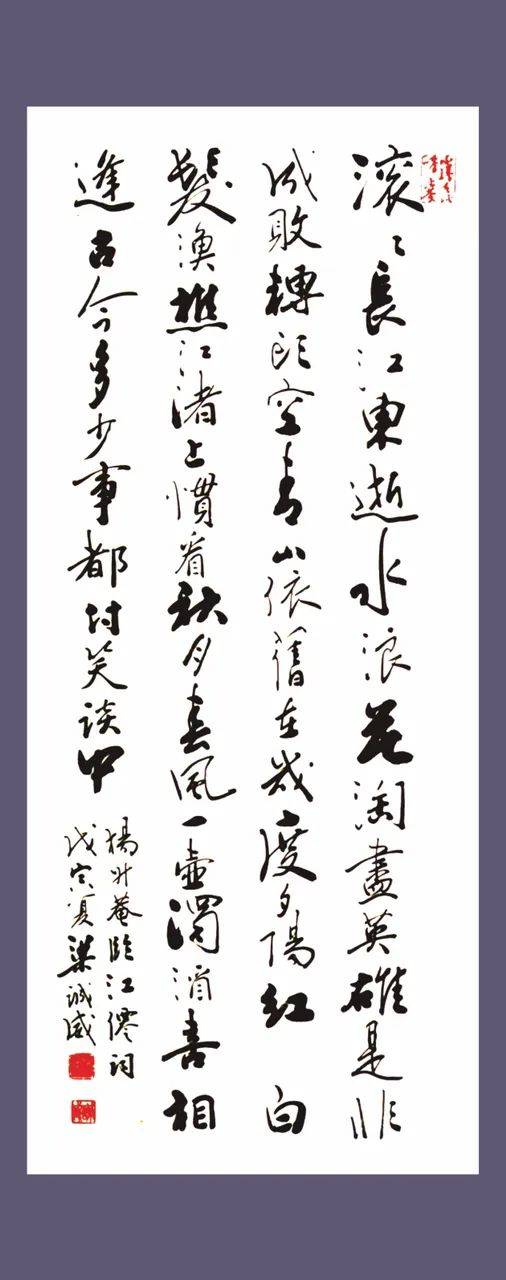 滚〻長江東逝水浪花淘盡英雄是非
成敗轉頭空青山依舊在幾度夕陽紅白
髮漁樵江渚上慣看秋月春風一壺濁酒喜相
逢古今多少事都付笑談中
楊升菴臨江僊詞
戊寅夏梁誠威